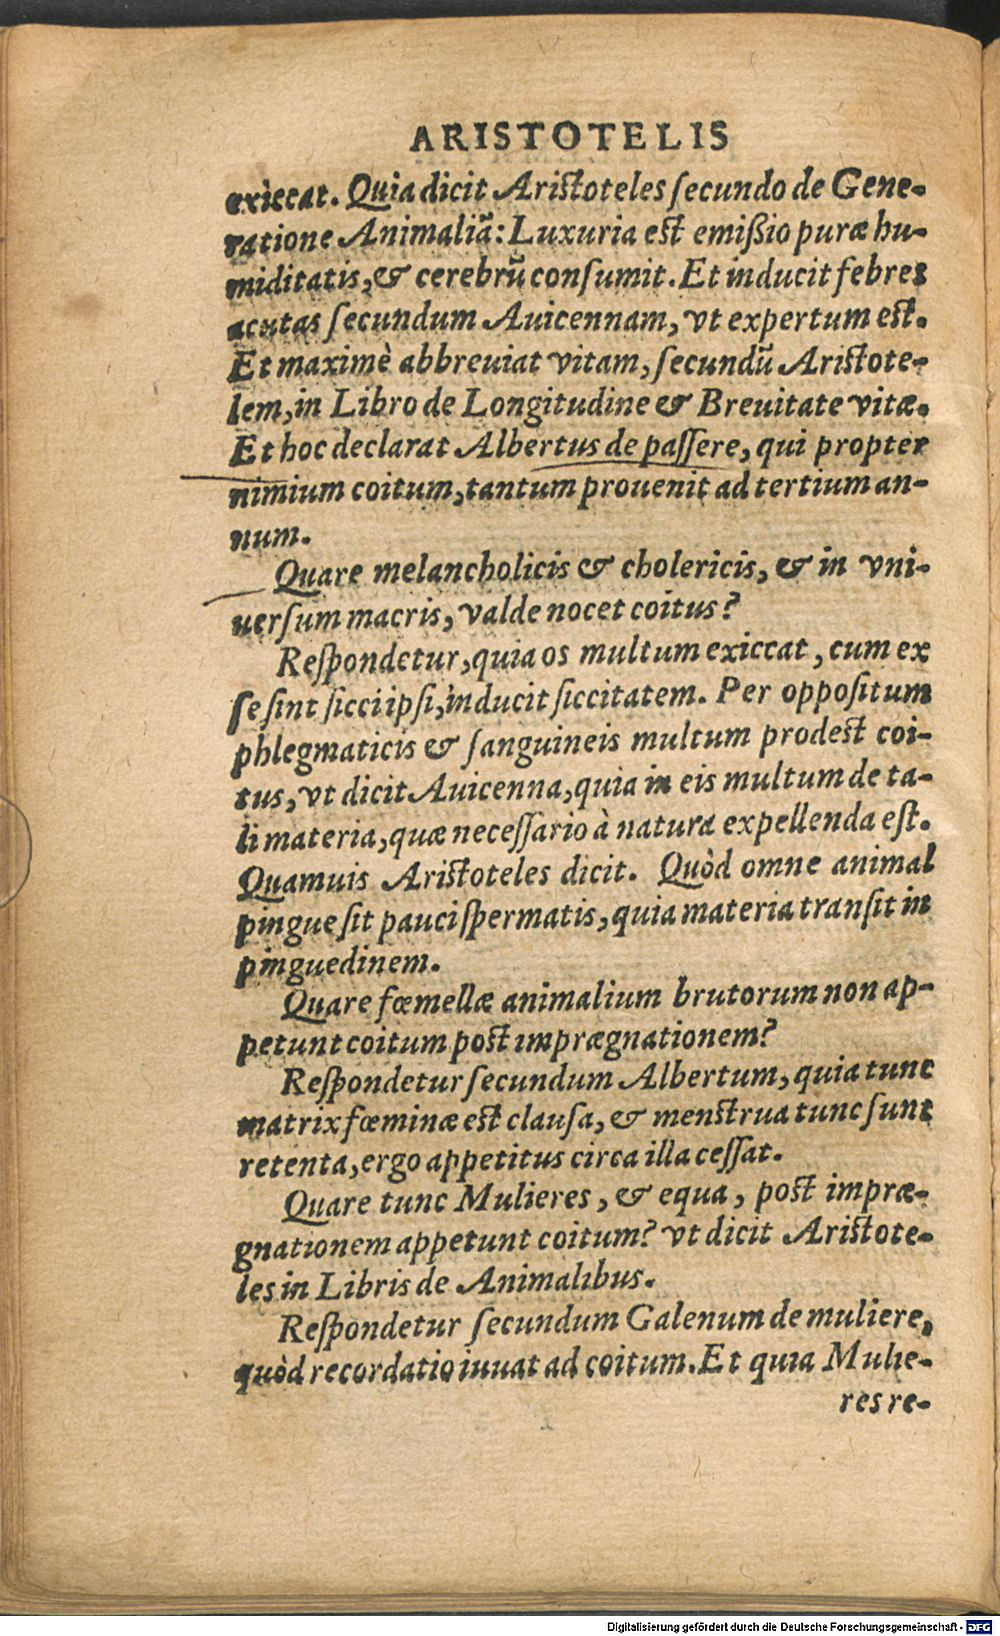 ARISTOTELIS
exiccat. Quia dicit Aristoteles secundo de Gene-
ratione Animaliū: Luxuria est emißio puræ hu-
miditatis, & cerebrū consumit. Et inducit febres
acutas secundum Auicennam, vt expertum est.
Et maximè abbreuiat vitam, secundū Aristote-
lem, in Libro de Longitudine & Breuitate vitæ.
Et hoc declarat Albertus de passere, qui propter
nimium coitum, tantum prouenit ad tertium an-
num.
Quare melancholicis & cholericis, & in vni-
uersum macris, valde nocet coitus?
Respondetur, quia os multum exiccat, cum ex
se sint sicci ipsi, inducit siccitatem. Per oppositum
phlegmaticis & sanguineis multum prodest coi-
tus, vt dicit Auicenna, quia in eis multum de ta-
li materia, quæ necessario à natura expellenda est.
Quamuis Aristoteles dicit. Quòd omne animal
pingue sit pauci spermatis, quia materia transit in
pinguedinem.
Quare fœmellæ animalium brutorum non ap-
petunt coitum post imprægnationem?
Respondetur secundum Albertum, quia tunc
matrix fœminæ est clausa, & menstrua tunc sunt
retenta, ergo appetitus circa illa cessat.
Quare tunc Mulieres, & equa, post impræ-
gnationem appetunt coitum? vt dicit Aristote-
les in Libris de Animalibus.
Respondetur secundum Galenum de muliere,
quòd recordatio iuuat ad coitum. Et quia Mulie-
res re-
Digitalisierung gefördert durch die Deutsche Forschungsgemeinschaft - DFG